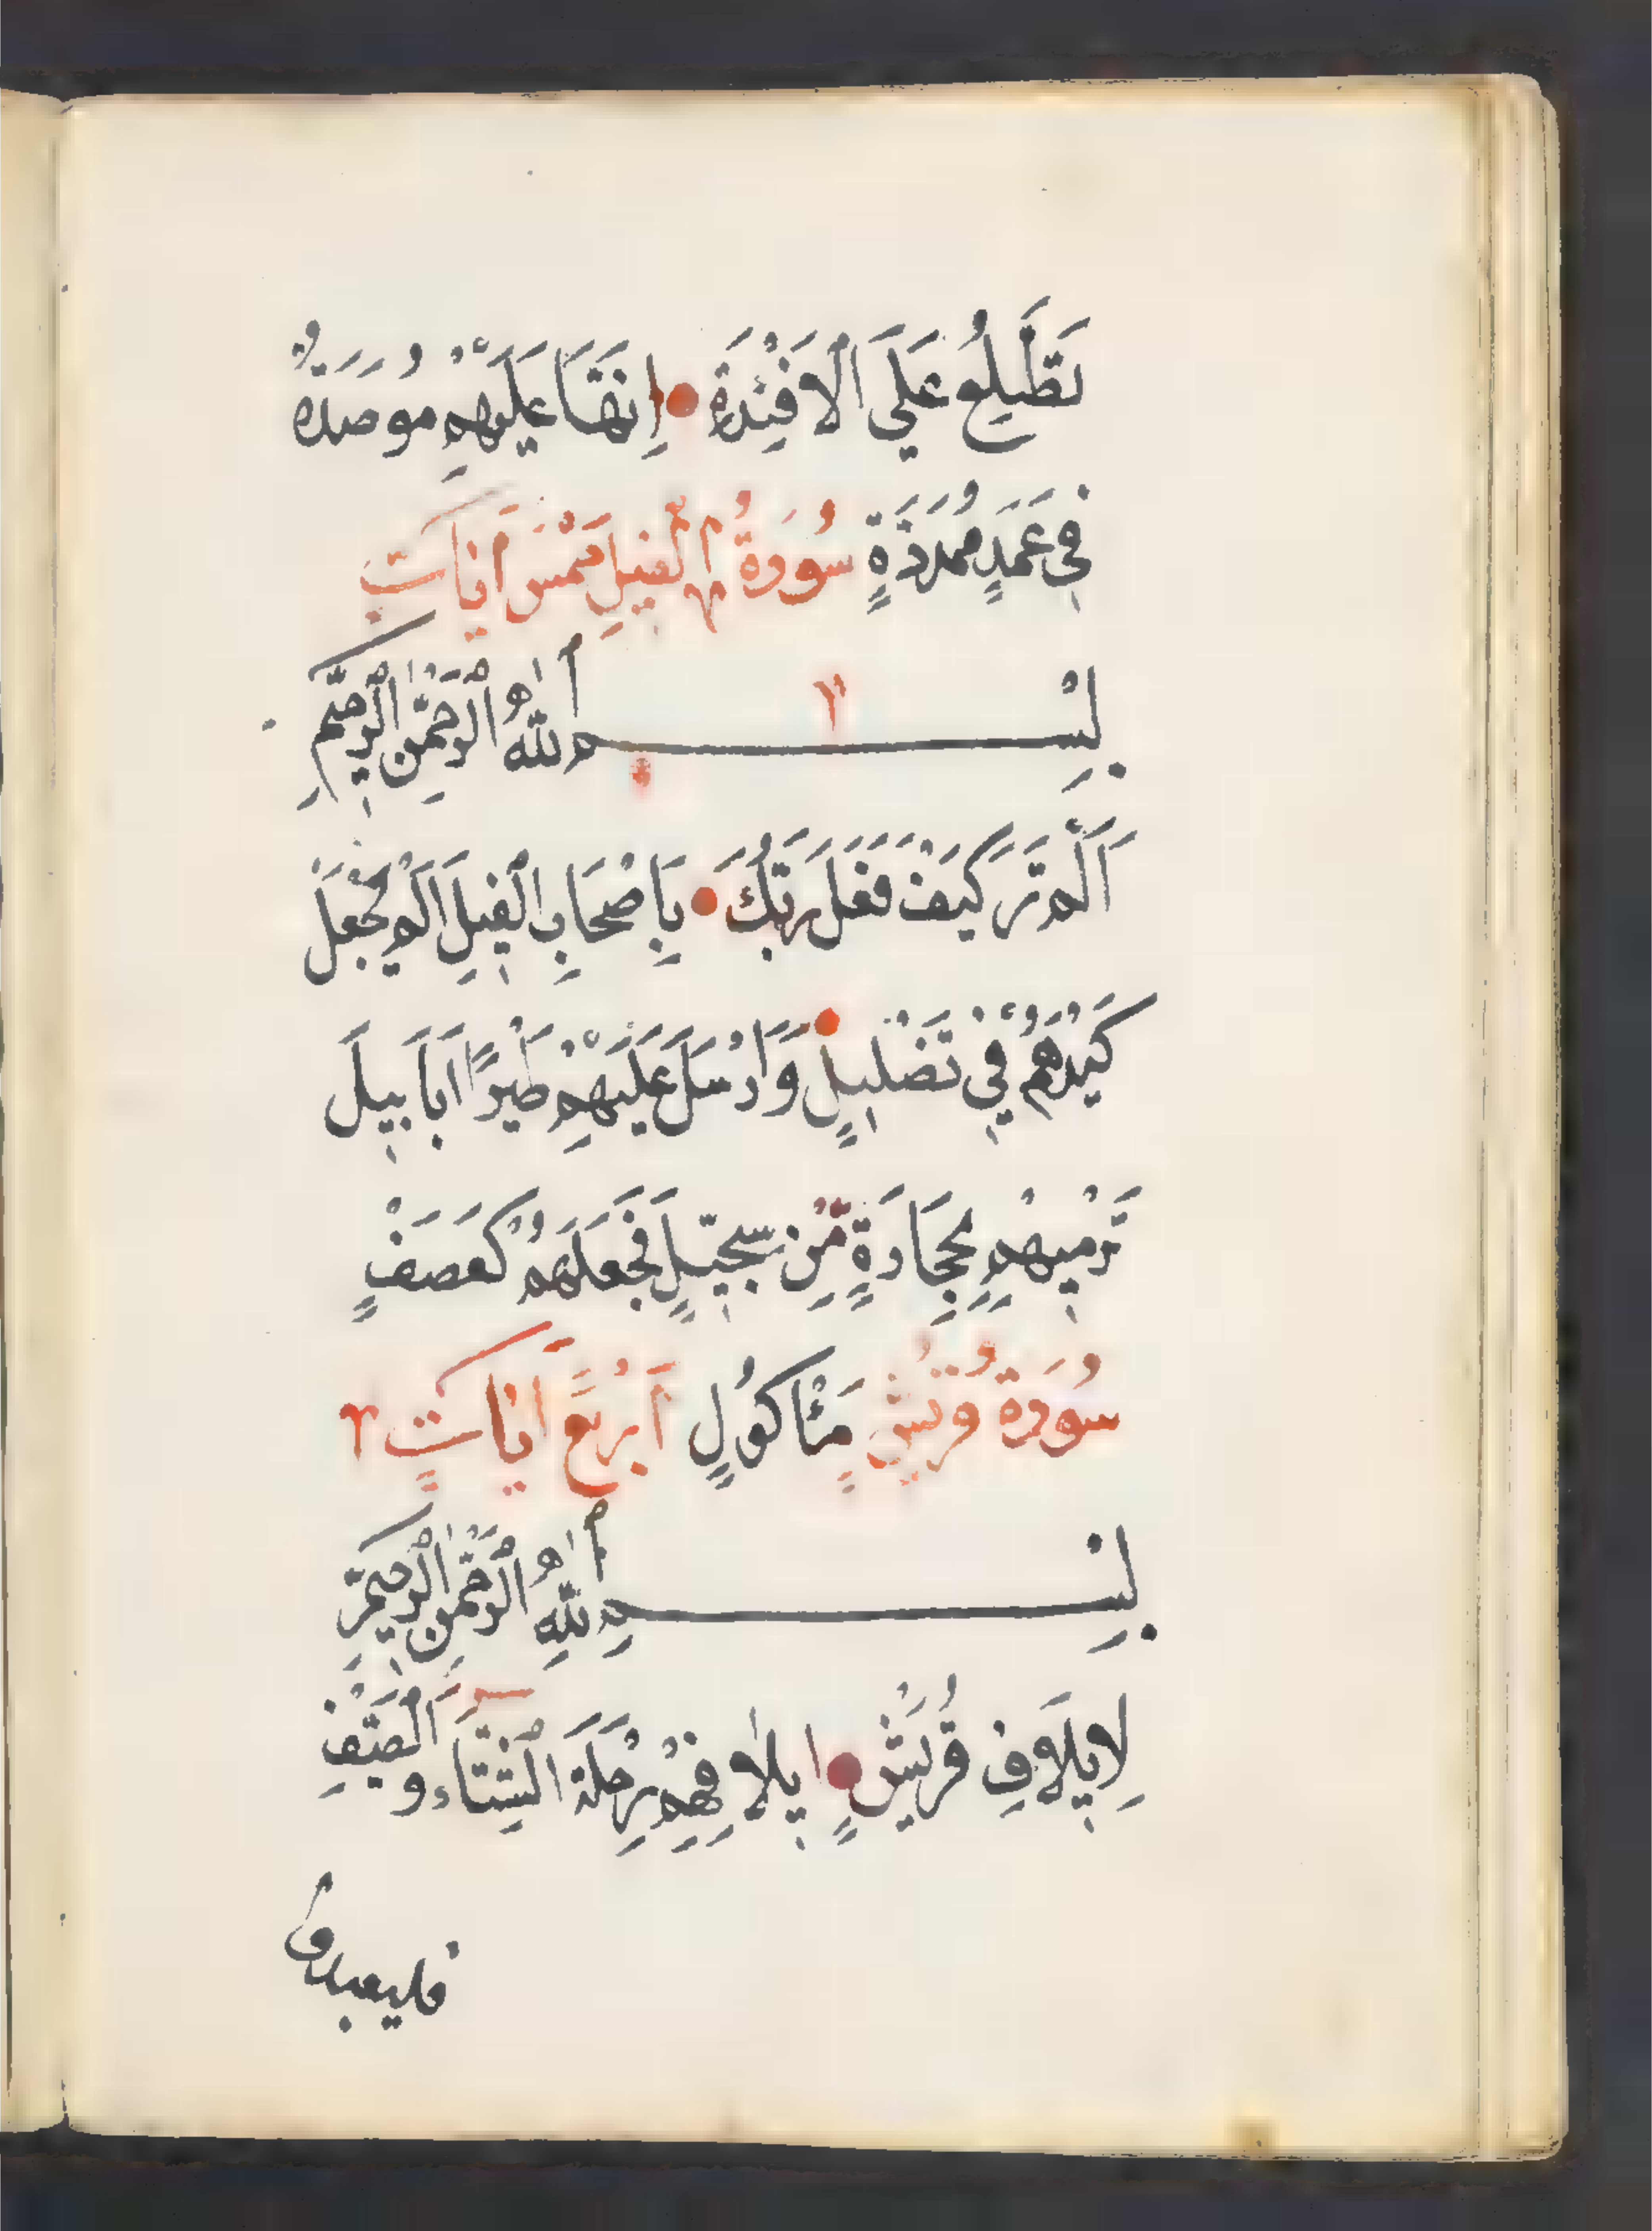 تَطَّلِعُ عَلَي الْاَفْئِدَةِ اِنَّهَا عَلَيْهِمْ مُوصَدَةٌ
فِي عَمَدٍ مُمَدَّدَةٍ سُورَةُ الْفِيلِ خَمْسَ اٰيَاتٍ
بِسْمِ اللّٰهِ الرَّحْمٰنِ الرَّحِيمِ
اَلَمْ تَرَ كَيْفَ فَعَلَ رَبُّكَ بِاَصْحَابِ الْفِيلِ اَلَمْ يَجْعَلْ
كَيْدَهُمْ فِي تَضْلِيلٍ وَاَرْسَلَ عَلَيْهِمْ طَيْرًا اَبَابِيلَ
تَرْمِيهِمْ بِحِجَارَةٍ مِّنْ سِجِّيلٍ فَجَعَلَهُمْ كَعَصْفٍ
سُورَةُ قُرَيْشٍ مَّئْاكُولٍ اَرْبَعَ اٰيَاتٍ
بِسْمِ اللّٰهِ الرَّحْمٰنِ الرَّحِيمِ
لِاِيلَافِ قُرَيْشٍ اِيلَافِهِمْ رِحْلَةَ الشِّتَاءِ وَالصَّيْفِ
فليعبدوا